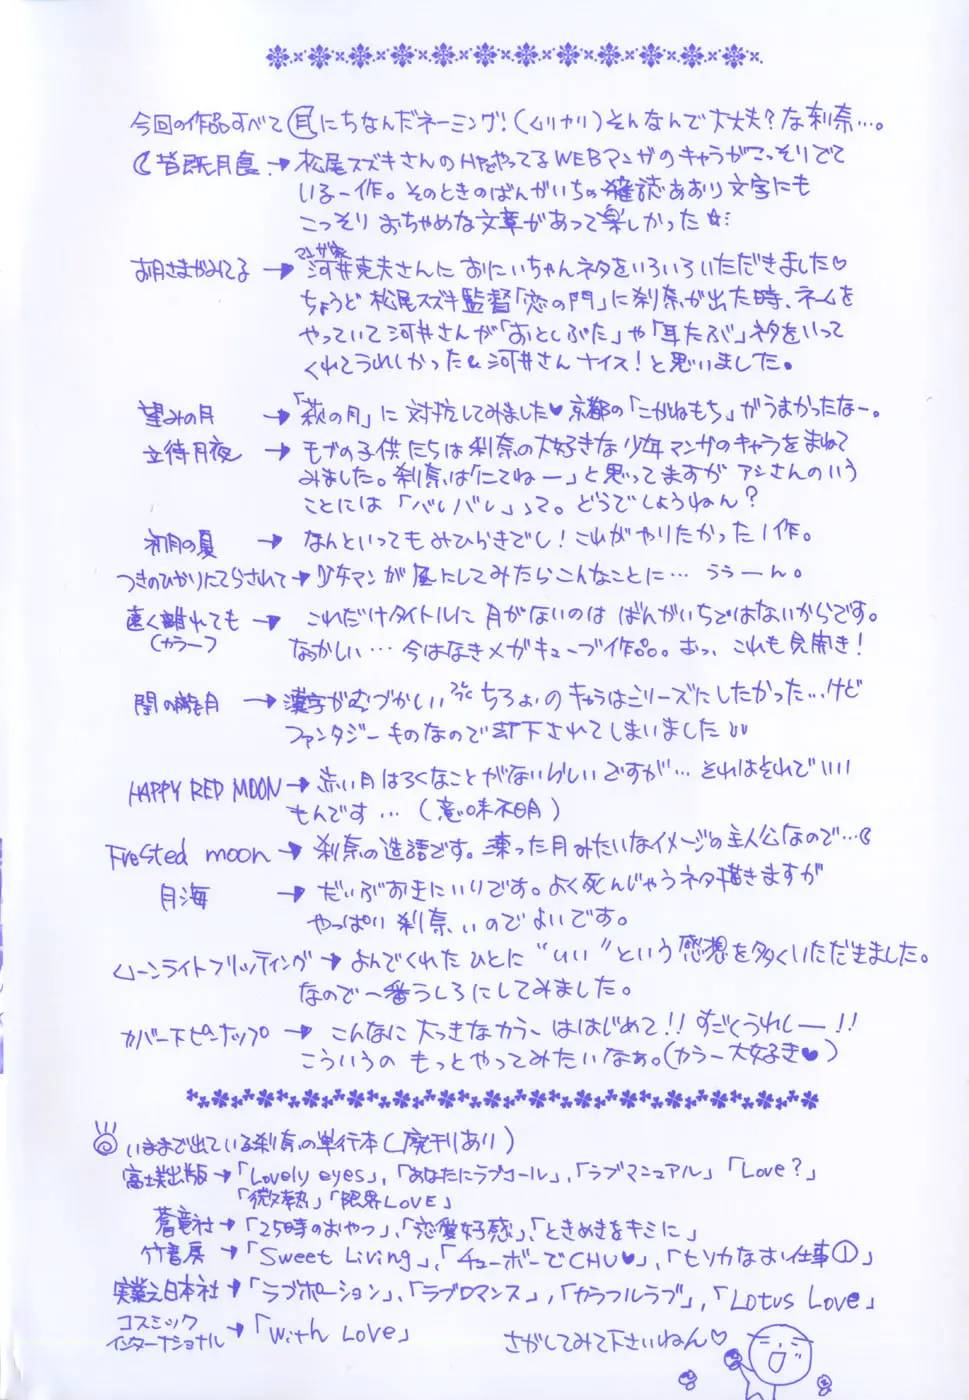 今回の作品すべて月にちなんだネーミング!(ムリヤリ)そんなんで大丈夫?な刹奈…。
皆既月食→松尾スズキさんのHPでやってるWEBマンガのキャラがこっそりでて
いる一作。そのときのばんがいちの雑誌あおり文字にも
こっそりおちゃめな文章があって楽しかった☆
お月さまがみてる→マンガ家
河井克夫さんにおにいちゃんネタをいろいろいただきました♡
ちょうど松尾スズキ監督「恋の門」に刹奈が出た時、ネームを
やっていて河井さんが「おとしぶた」や「耳たぶ」ネタをいって
くれてうれしかった 河井さんナイス!と思いました。
望みの月→「萩の月」に対抗してみました♥京都の「こがねもち」がうまかったなー。
立待月夜→モブの子供たちは刹奈の大好きな少年マンガのキャラをまねて
みました。刹奈は「にてねー」と思ってますがアシさんのいう
ことには「バレバレ」って。どうでしょうねん?
初月の夏→なんといってもみひらきでし!これがやりたかった1作。
つきのひかりにてらされて→少年マンガ風にしてみたらこんなことに…ううーん。
遠く離れても→これだけタイトルに月がないのはばんがいちではないからです。
(カラー) なつかしい…今はなきメガキューブ作品。おっ、これも見開き!
闇の朧月→漢字がむづかしい ちろょいのキャラはシリーズにしたかった…けど
ファンタジーものなので却下されてしまいました
HAPPY RED MOON→赤い月はろくなことがないらしいですが…それはそれでいい
もんです…(意味不明)
Frested moon→刹奈の造語です。凍った月みたいなイメージの主人公なので…
月海→だいぶおきにいりです。よく死んじゃうネタ描きますが
やっぱり刹奈、いのでよいです。
ムーンライトフリッティング→よんでくれたひとに"いい"という感想を多くいただきました。
なので一番うしろにしてみました。
カバー下ピンナップ→こんなに大っきなカラーははじめて!!すごくうれしー!!
こういうのもっとやってみたいなぁ。(カラー大好き♥)
いままで出ている刹奈の単行本(廃刊あり)
富士美出版→「Lovely eyes」,「あなたにラブコール」,「ラブマニュアル」「Love?」
「微熱」「限界LOVE」
蒼竜社→「25時のおやつ」,「恋愛好感」,「ときめきをキミに」
竹書房→「Sweet Living」,「チューボーでCHU♥」,「ヒソカなお仕事①」
実業之日本社→「ラブポーション」,「ラブロマンス」,「カラフルラブ」,「Lotus Love」
コスミック
インターナショナル→「With Love」
さがしてみて下さいねん♡